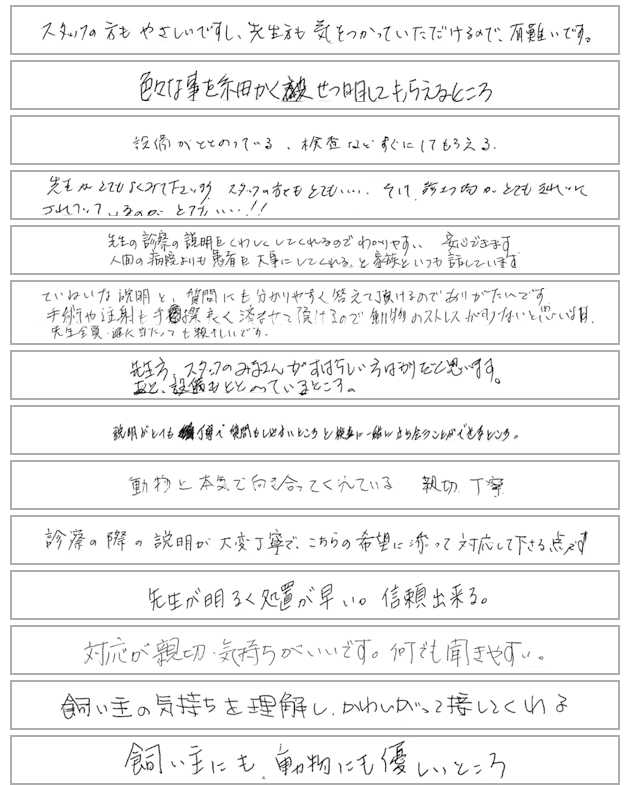 スタッフの方も やさしいですし、先生方も 気をつかっていただけるので、有難いです。
色々な事を細かく せつ明してもらえるところ
設備がととのっている、検査など すぐにしてもらえる。
先生がとても スタッフの方々もとてもいい、、、 とても
いるのが とてもいい、、!!
先生の診察の説明をくわしくしてくれるのでわかりやすい、 安心できます
人間の病院よりも患者を大事にしてくれる。と家族といつも話しています
ていねいな説明と、質問にも分かりやすく答えて頂けるのでありがたいです
手術や注射も手際良く済ませて頂けるので動物のストレスが少ないと思います。
先生全員 誰に当たっても親しいです。
先生方、スタッフのみなさんがすばらしい方ばかりだと思います。
あと、設備もととのっているところ。
説明がとても 丁寧で質問もしやすいところと検査に一緒に立ち会うことができるところ。
動物と本気で向き合ってくれている 親切、丁寧
診察の際の説明が大変丁寧で、こちらの希望に添って対応して下さる点です
先生が明るく処置が早い。信頼出来る。
対応が親切、気持ちがいいです。何でも聞きやすい。
飼い主の気持ちを理解し、かわいがって接してくれる
飼い主にも、動物にも優しいところ